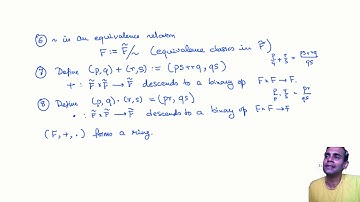 ⑥ ~ is an equivalence relation
F := F̃/~ (equivalence classes in F̃)
⑦ Define (p,q) + (r,s) := (ps+rq, qs)
p/q + r/s = ps+rq/qs
+ : F̃×F̃ → F̃ descends to a binary op F×F → F.
⑧ Define (p,q)·(r,s) = (pr, qs)
p/q · r/s = pr/qs
· : F̃×F̃ → F̃ descends to a binary op F×F → F
(F, +, ·) forms a ring.